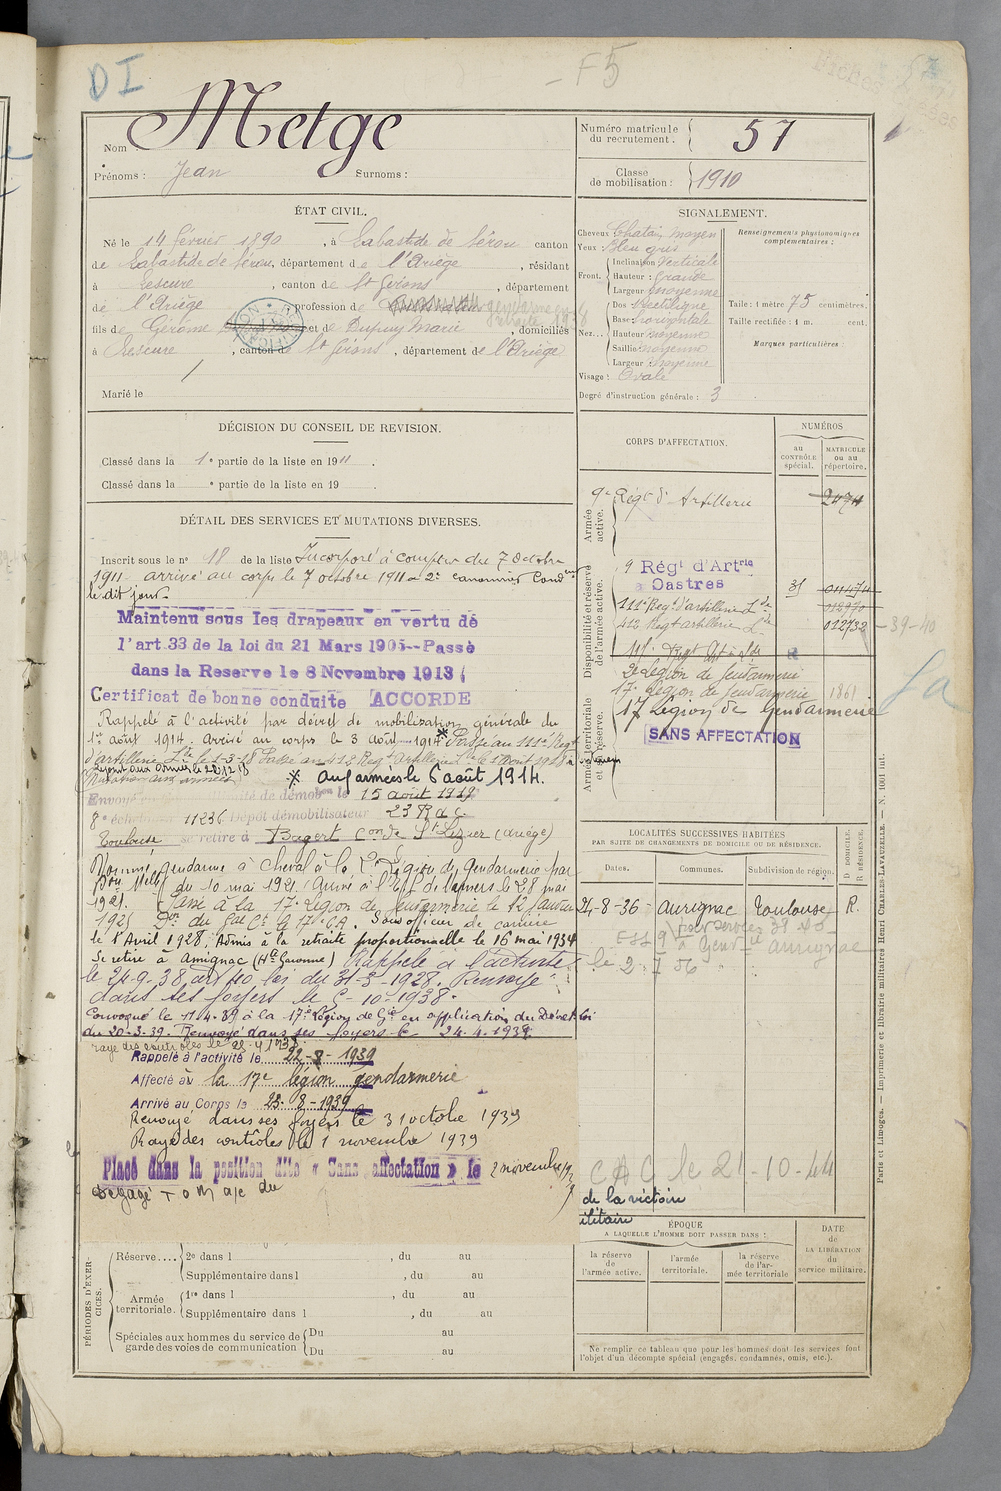 DI
- F5
Nom : Metge
Prénoms : Jean Surnoms :
Numéro matricule du recrutement : 57
Classe de mobilisation : 1910
ÉTAT CIVIL.
Né le 14 février 1890, à Labastide de Sérou canton
de Labastide de Sérou, département de l'Ariège, résidant
à Lescure, canton de St Girons, département
de l'Ariège profession de gendarme en retraite
fils de Gérome et de Dupuy Marie, domiciliés
à Lescure, canton de St Girons, département de l'Ariège
Marié le
SIGNALEMENT.
Cheveux Chatain moyen
Yeux : Bleu gris
Front. Inclinaison Verticale
Hauteur : Grande
Largeur : moyenne
Nez... Dos rectiligne
Base : horizontale
Hauteur moyenne
Saillie moyenne
Largeur : moyenne
Visage : Ovale
Renseignements physionomiques complémentaires :
Taille : 1 mètre 75 centimètres.
Taille rectifiée : 1 m. cent.
Marques particulières :
Degré d'instruction générale : 3
DÉCISION DU CONSEIL DE REVISION.
Classé dans la 1e partie de la liste en 1911.
Classé dans la e partie de la liste en 19 .
DÉTAIL DES SERVICES ET MUTATIONS DIVERSES.
Inscrit sous le no 18 de la liste Incorporé à compter du 7 Octobre
1911 arrivé au corps le 7 octobre 1911 2e canonnier Cond
le dit jour.
Maintenu sous les drapeaux en vertu de
l'art. 33 de la loi du 21 Mars 1905--Passé
dans la Reserve le 8 Novembre 1913
Certificat de bonne conduite ACCORDE
Rappelé à l'activité par décret de mobilisation générale du
1er août 1914. Arrivé au corps le 3 août 1914 * Passé au 111e Regt
d'artillerie Lde le 1-3-18 Passé au 412 Regt artillerie
* aux armées le 6 août 1914.
15 août 1919
8e échelon no 11236 Dépôt démobilisateur 23 R.a.c.
Toulouse se retire à Bagert Con de St Lizier (Ariège)
Nommé gendarme à cheval à la Légion de Gendarmerie par
du 10 mai 1921. Arrivé à l'le 28 mai
1921. Passé à la 17e Légion de Gendarmerie le 12 janvier
192 Don du Gal Ct le 17e C.A. Sous officier de carrière
le 1 Avril 1928, Admis à la retraite proportionnelle le 16 mai 1934
Se retire à Aurignac (Hte Garonne) Rappelé à l'activité
le 24-9-38, art 40, loi du 31-3-1928. Renvoyé
dans ses foyers le -10-1938.
Convoqué le 11.4.39 à la 17e Légion de Gie en application du Décret loi
du 20-3-39. Renvoyé dans ses foyers le 24.4.1939
Rappelé à l'activité le 22-8-1939
Affecté à la 17e légion gendarmerie
Arrivé au Corps le 23-8-1939
Renvoyé dans ses foyers le 31 octobre 1939
Rayé des contrôles le 1 novembre 1939
Placé dans la position dite « Sans affectation » le 2 novembre
Dégagé
CORPS D'AFFECTATION.
NUMÉROS
AU CONTRÔLE spécial.
MATRICULE ou au répertoire.
Armée active.
9e Régt d'Artillerie 2474
Disponibilité et réserve de l'armée active.
9 Régt d'Artrie
a Castres 31
111e Regt d'artillerie Lde
412 Regt artillerie Lde 012732 - 39-40
Armée territoriale et sa réserve.
Légion de Gendarmerie
17e Légion de Gendarmerie 1861
17 Légion de Gendarmerie
SANS AFFECTATION
LOCALITÉS SUCCESSIVES HABITÉES
PAR SUITE DE CHANGEMENTS DE DOMICILE OU DE RÉSIDENCE.
Dates. Communes. Subdivision de région.
D. DOMICILE. R. RÉSIDENCE.
24-8-36 - Aurignac Toulouse R.
C A C le 21-10-44
de la victoire
ÉPOQUE
A LAQUELLE L'HOMME DOIT PASSER DANS :
la réserve de l'armée active.
l'armée territoriale.
la réserve de l'armée territoriale
DATE de LA LIBÉRATION du service militaire.
Ne remplir ce tableau que pour les hommes dont les services font
l'objet d'un décompte spécial (engagés, condamnés, omis, etc.).
PÉRIODES D'EXERCICES.
Réserve.... 2e dans l , du au
Supplémentaire dans l , du au
Armée territoriale. 1re dans l , du au
Supplémentaire dans l , du au
Spéciales aux hommes du service de garde des voies de communication Du au
Du au
Paris et Limoges. — Imprimerie et librairie militaires Henri CHARLES-LAVAUZELLE. — N. 1001 int.